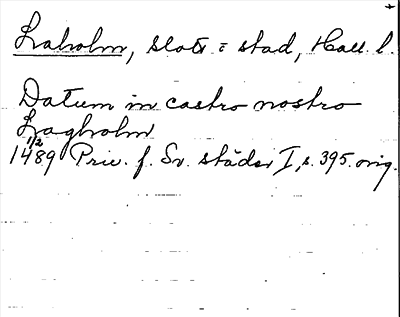 Laholm, slott o stad, Hall. l.
Datum in castro nostro
Lagholm
1/2
1489 Priv. f. Sv. städer I, s. 395. orig.